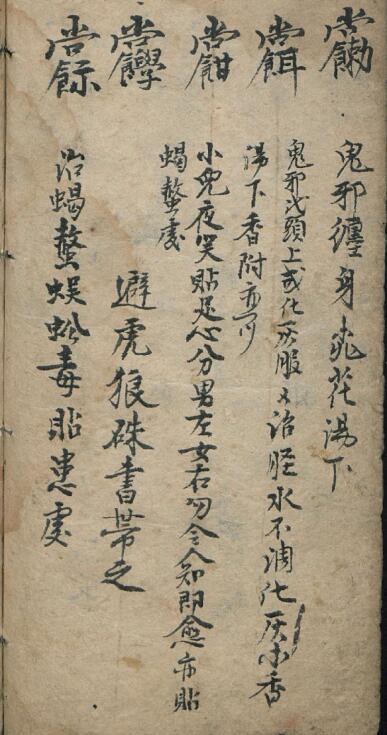 鬼邪纏身桃花湯下
鬼邪代頭上或化灰服又治胫水不調化灰小香
湯下香附亦可
小兒夜哭貼足心分男左女右勿令人知即愈亦貼
蝎螫處
避虎狼硃書帶之
治蝎螫蜈蚣毒貼患處